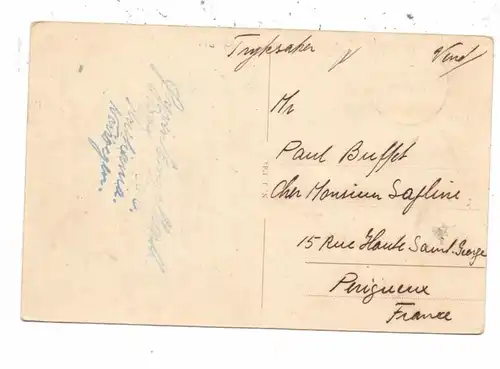 Tryksaker
Vend
Mr
Paul Buffet
Cher Monsieur Lafline
15 Rue Haute Saint-George
Perigueux
France
Kristiania.
Norvegen.